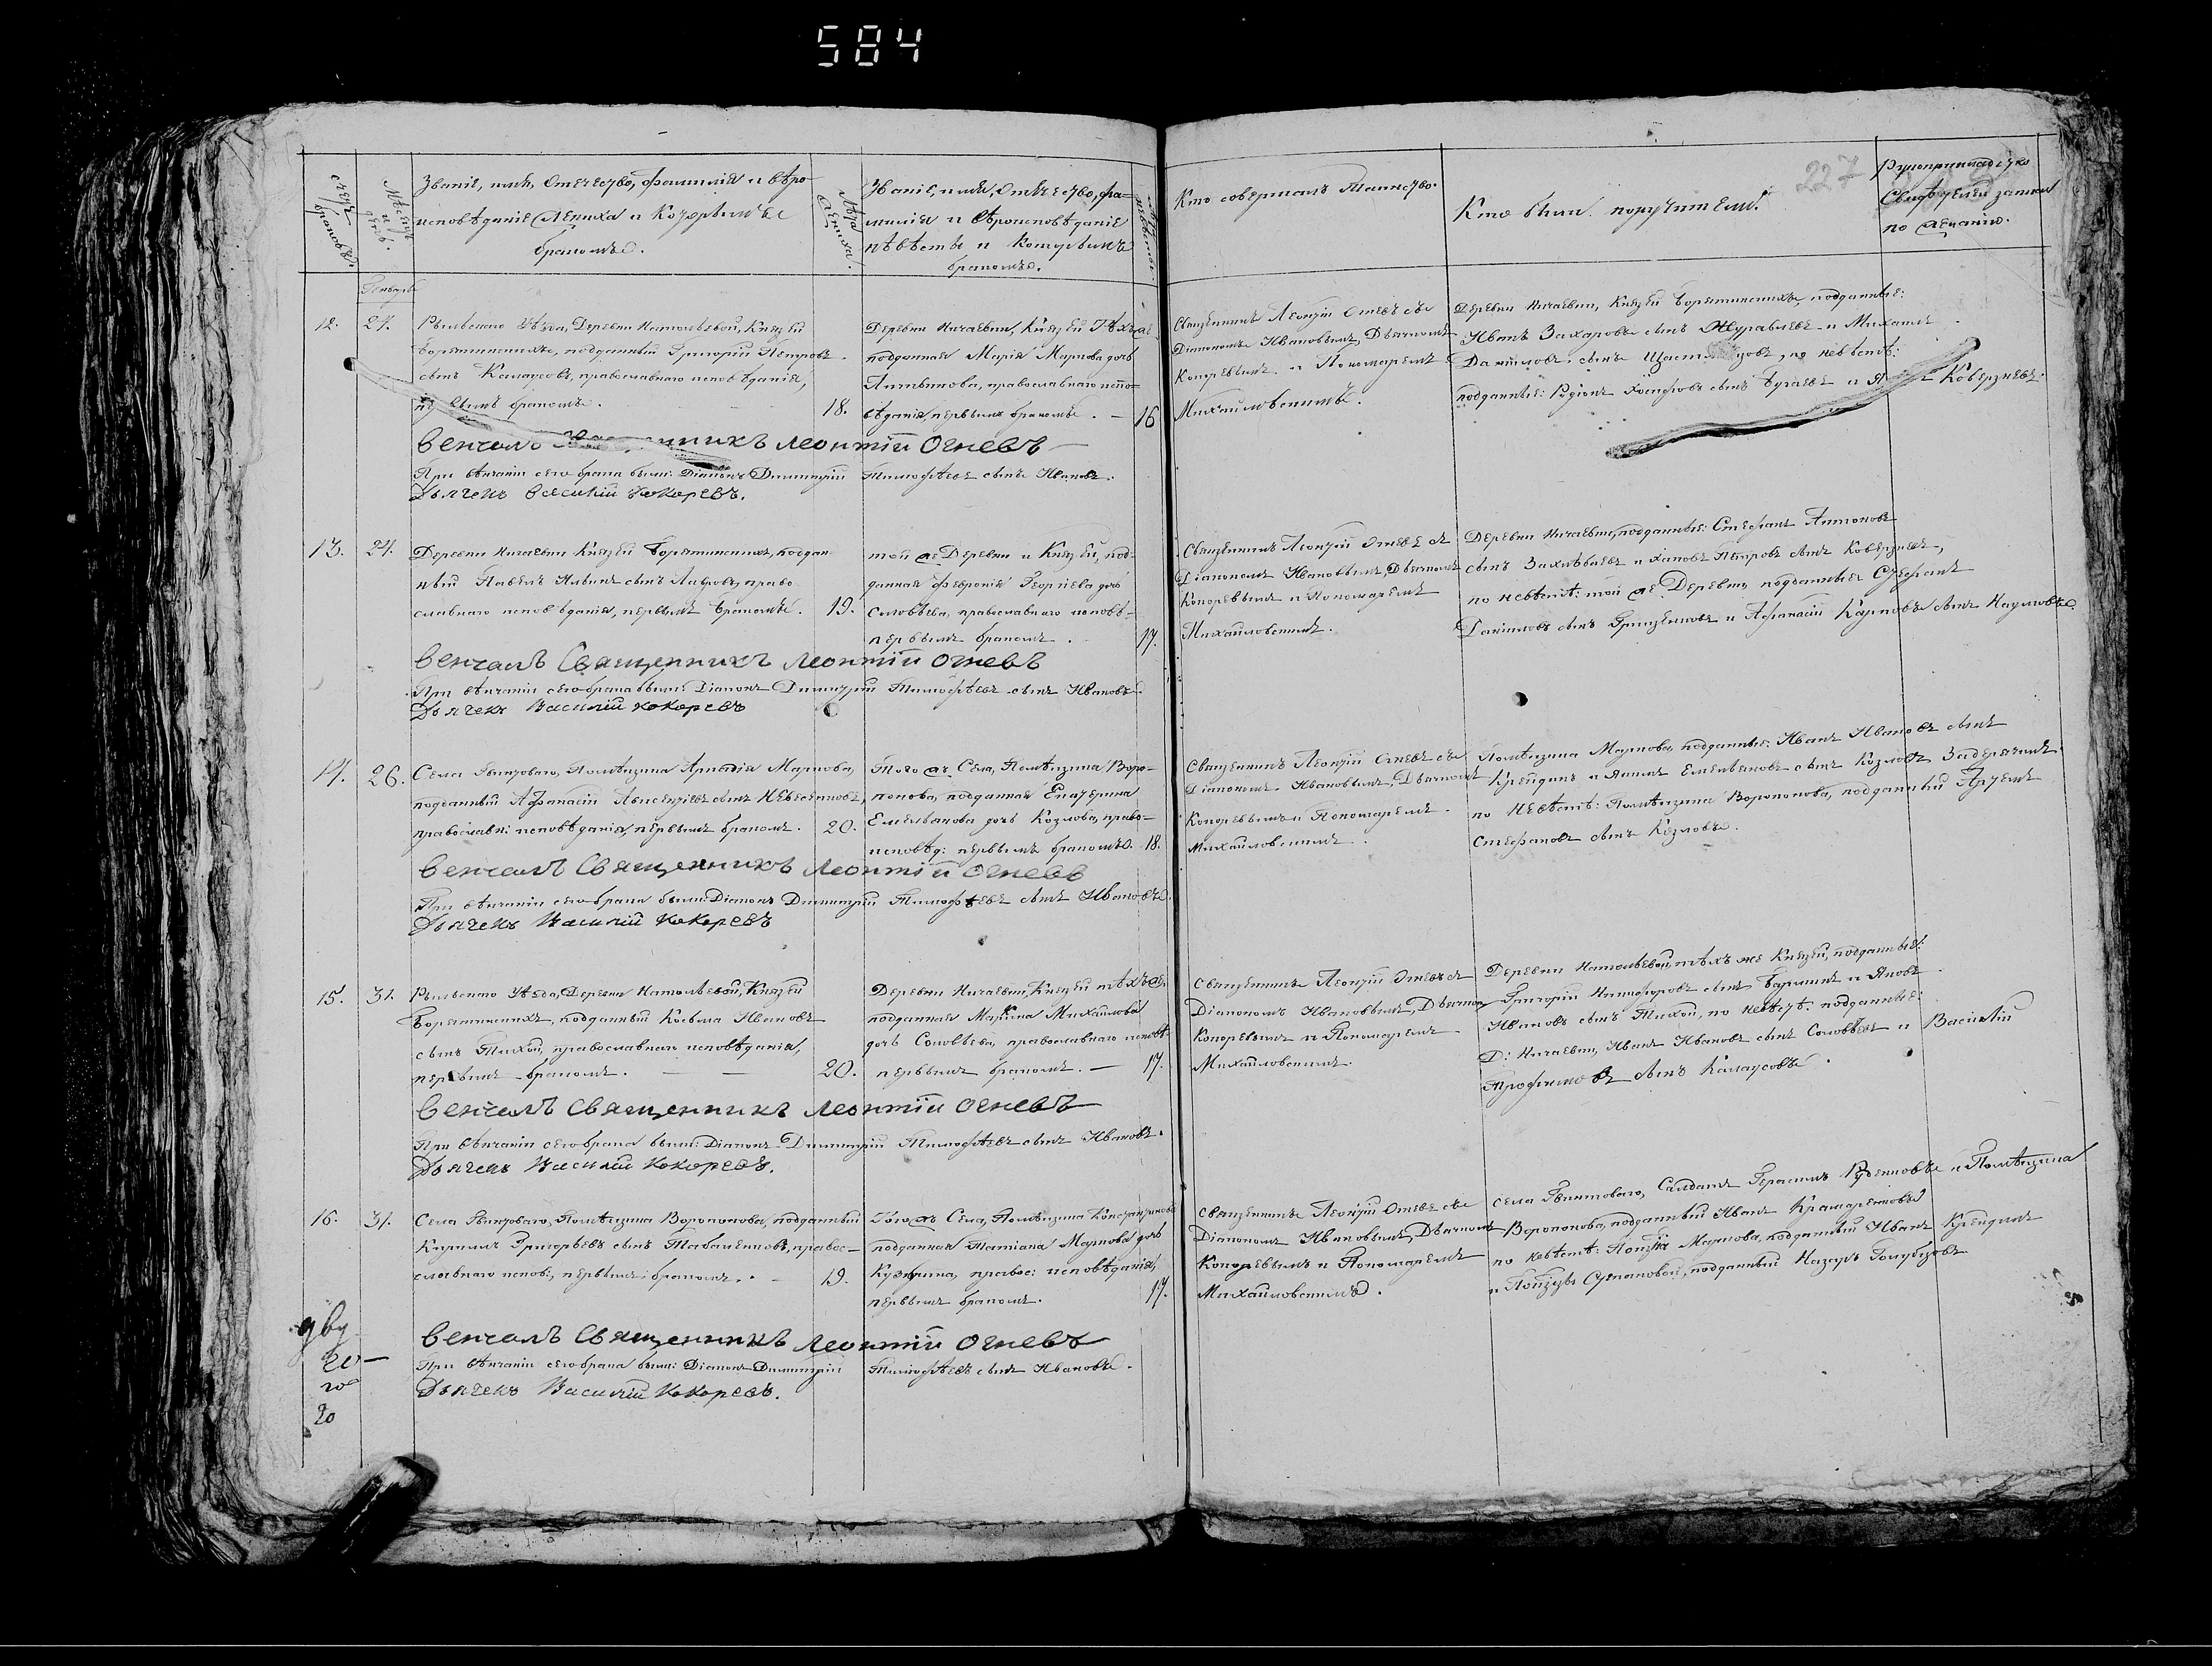 584
227
Счетъ браковъ.
Мѣсяцъ и день.
Званіе, имя, отечество, фамилія и вѣро-
исповѣданіе жениха и которымъ
бракомъ.
Лѣта жениха.
Званіе, имя, отечество, фа-
милія и вѣроисповѣданіе
невѣсты и которымъ
бракомъ.
Кто совершалъ таинство.
Кто были поручители.
Свидѣтелей записи
по
Генварь
12.
24.
Рыльскаго уѣзда, Деревни Князей
Борятинскихъ, подданный Григорій Петровъ
сынъ православнаго исповѣданія,
бракомъ.
18.
Деревни Ничаевки, Князей тѣхъ же
подданная Марія Маркова дочь
Литвинова, православнаго испо-
вѣданія, первымъ бракомъ.
16
Священникъ Леонтій Огневъ съ
Діакономъ Ивановымъ, Дьячкомъ
Кокоревымъ и Пономаремъ
Михайловскимъ.
Деревни Ничаевки, Князей Борятинскихъ, подданные:
Иванъ Захаровъ сынъ Журавлевъ и Михаилъ
Даниловъ сынъ по невѣстѣ:
подданные: Родіонъ сынъ и Коверзневъ.
Венчалъ Священникъ Леонтій Огневъ
При вѣнчаніи сего брака были: Діаконъ Димитрій Тимофѣевъ сынъ Ивановъ.
Дьячекъ Василій Кокоревъ.
13.
24.
Деревни Ничаевки Князей Борятинскихъ, поддан-
ный Павелъ Ильинъ сынъ Лавровъ, право-
славнаго исповѣданія, первымъ бракомъ.
19.
той же Деревни и Князей, под-
данная Февронія Георгіева дочь
Соловьева, православнаго исповѣ-
первымъ бракомъ.
17.
Священникъ Леонтій Огневъ съ
Діакономъ Ивановымъ, Дьячкомъ
Кокоревымъ и Пономаремъ
Михайловскимъ.
Деревни Ничаевки, подданные: Стефанъ Антоновъ
сынъ и Петровъ сынъ Коверзневъ,
по невѣстѣ: той же Деревни, подданные Стефанъ
Даніиловъ сынъ Гриценковъ и Афанасій Карповъ сынъ Наумовъ.
Венчалъ Священникъ Леонтій Огневъ
При вѣнчаніи сего брака были: Діаконъ Димитрій Тимофѣевъ сынъ Ивановъ.
Дьячекъ Василій Кокоревъ
14.
26.
Села Гвинтоваго, Помѣщика Аркадія Маркова,
подданный Афанасій Авксентіевъ сынъ
православн: исповѣданія, первымъ бракомъ.
20.
Того жъ Села, Помѣщика Воро-
понова, подданная Екатерина
Емельянова дочь Козлова, право-
исповѣд: первымъ бракомъ.
18.
Священникъ Леонтій Огневъ съ
Діакономъ Ивановымъ, Дьячкомъ
Кокоревымъ и Пономаремъ
Михайловскимъ.
Помѣщика Маркова, подданные: Иванъ Ивановъ сынъ
Крейдинъ и Якимъ Емельяновъ сынъ Козловъ
по невѣстѣ: Помѣщика Воропонова, подданный Артемъ
Стефановъ сынъ Козловъ.
Венчалъ Священникъ Леонтій Огневъ
При вѣнчаніи сего брака были: Діаконъ Димитрій Тимофѣевъ сынъ Ивановъ.
Дьячекъ Василій Кокоревъ
15.
31.
Рыльскаго Уѣзда, Деревни Князей
Борятинскихъ, подданный Косьма Ивановъ
сынъ Тихой, православнаго исповѣданія,
первымъ бракомъ.
20.
Деревни Ничаевки, Князей тѣхъ же
подданная Марина Михайлова
дочь Соловьева, православнаго исповѣ-
первымъ бракомъ.
17.
Священникъ Леонтій Огневъ съ
Діакономъ Ивановымъ, Дьячкомъ
Кокоревымъ и Пономаремъ
Михайловскимъ.
Деревни тѣхъ же Князей, подданные:
Григорій Никифоровъ сынъ и Яковъ
Ивановъ сынъ Тихой, по невѣстѣ: подданные:
Д: Ничаевки, Иванъ Ивановъ сынъ Соловьевъ и Василій
Трофимовъ сынъ Калаусовъ.
Венчалъ Священникъ Леонтій Огневъ
При вѣнчаніи сего брака были: Діаконъ Димитрій Тимофѣевъ сынъ Ивановъ.
Дьячекъ Василій Кокоревъ.
16.
31.
Села Гвинтоваго, Помѣщика Воропонова, подданный
Кириллъ Григорьевъ сынъ Табаченковъ, правос-
славнаго испов:, первымъ бракомъ.
19.
Того жъ Села, Помѣщика
подданная Татіана Маркова дочь
правос: исповѣданія,
первымъ бракомъ.
17.
Священникъ Леонтій Огневъ съ
Діакономъ Ивановымъ, Дьячкомъ
Кокоревымъ и Пономаремъ
Михайловскимъ.
Села Гвинтоваго, Салдатъ Герасимъ Руденковъ и Помѣщика
Воропонова, подданный Иванъ Крамаренковъ
по невѣстѣ: Маркова, подданный Иванъ Крейдинъ
и подданный Назаръ Голубцовъ
Венчалъ Священникъ Леонтій Огневъ
При вѣнчаніи сего брака были: Діаконъ Димитрій Тимофѣевъ сынъ Ивановъ.
Дьячекъ Василій Кокоревъ.
20